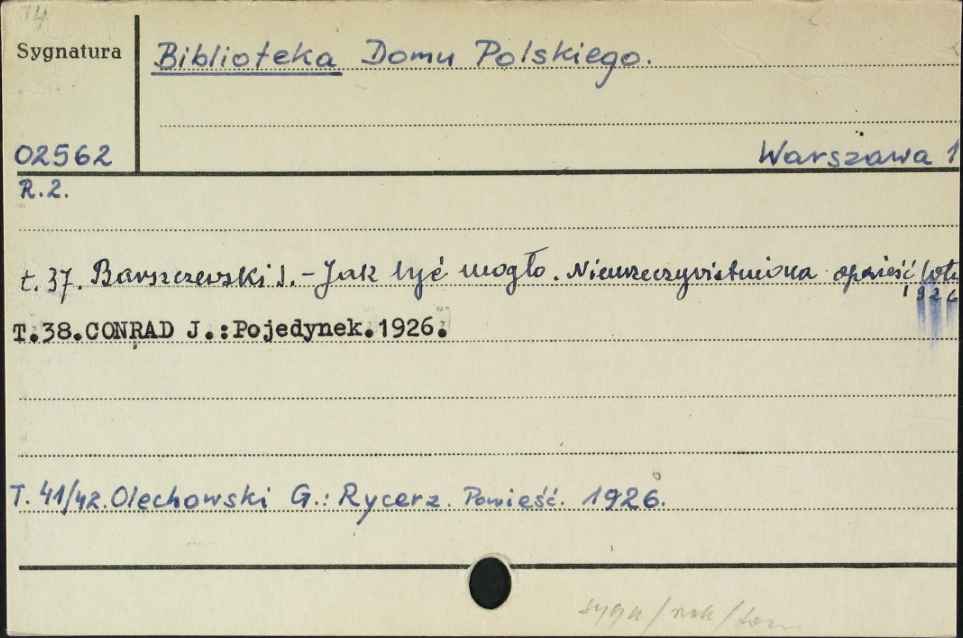 14
Sygnatura
Biblioteka Domu Polskiego.
02562
Warszawa 1
R.2.
t. 37. Barszczewski J. - Jak być mogło. Nieurzeczywistniona opowieść
1926
T.38.CONRAD J.:Pojedynek.1926.
T. 41/42. Olechowski G.: Rycerz. Powieść. 1926.
sygn / rok / tom